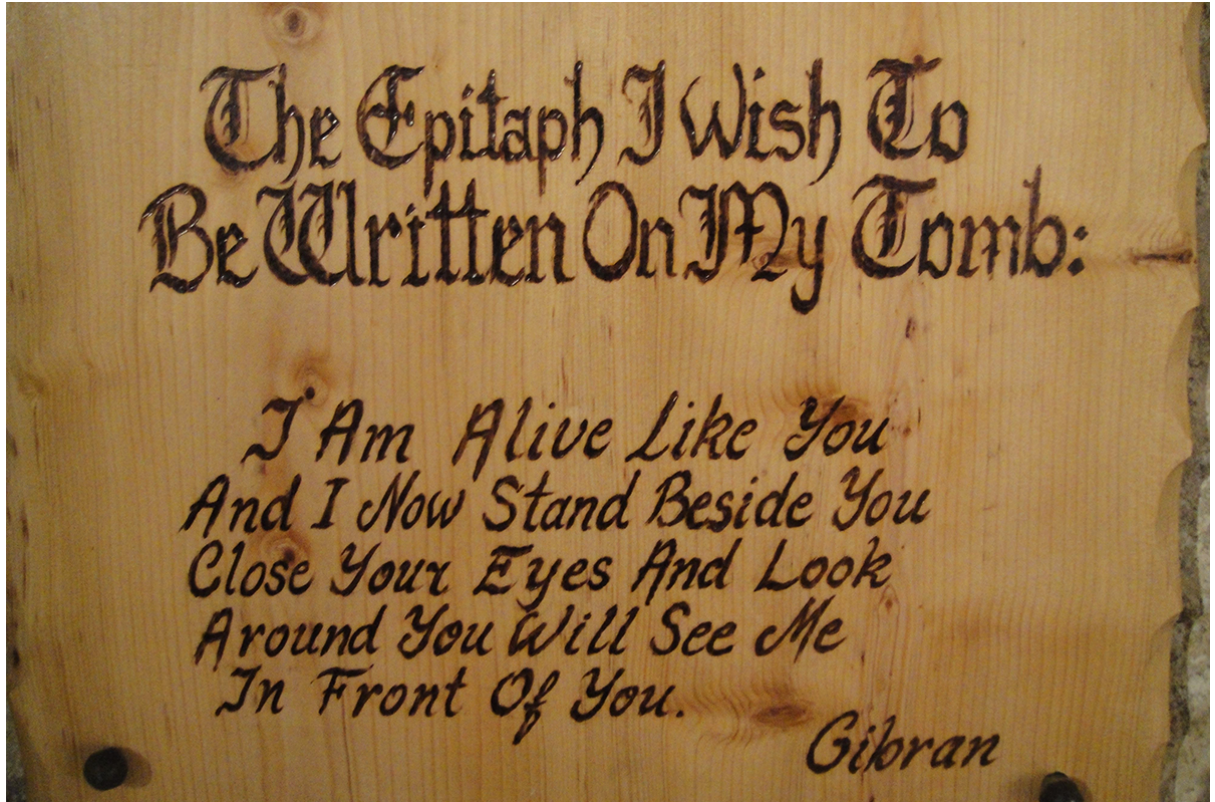 The Epitaph I Wish To
Be Written On My Tomb:
I Am Alive Like You
And I Now Stand Beside You
Close Your Eyes And Look
Around You Will See Me
In Front Of You.
Gibran